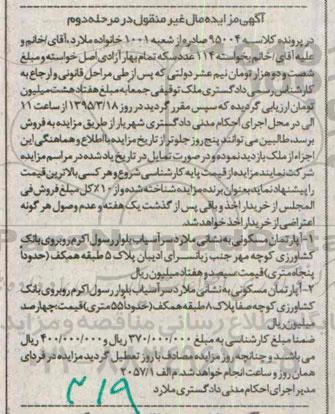 آگهی مزایده مال غیر منقول در مرحله دوم
در پرونده کلاسه ۹۵۰۰۴ صادره از شعبه ۱۰۰۱ خانواده ملارد، آقای/خانم و
علیه آقای /خانم بخواسته ۱۱۴ عدد سکه تمام بهار آزادی اصل خواسته و مبلغ
شصت و دو هزار تومان نیم عشر دولتی که پس از طی مراحل قانونی و ارجاع به
کارشناس رسمی دادگستری ملک توقیفی جمعا به مبلغ هفتاد هشت میلیون
تومان ارزیابی گردیده که سپس مقرر گردید در روز ۱۳۹۵/۳/۱۸ از ساعت ۱۱
الی در محل اجرای احکام مدنی دادگستری شهریار از طریق مزایده به فروش
برسد، طالبین می توانند پنج روز جلوتر از تاریخ مزایده با اطلاع و هماهنگی این
اجرا از ملک بازدید نموده و در صورت تمایل در تاریخ یاد شده در مراسم مزایده
شرکت نمایند مزایده از قیمت پایه کارشناسی شروع و هر کسی بالاترین قیمت
را پیشنهاد نماید بعنوان برنده مزایده شناخته شده و از ۱۰٪ کل مبلغ فروش فی
المجلس از خریدار اخذ و باقی پس از گذشت یک هفته و عدم وصول هر گونه
اعتراضی از خریدار اخذ خواهد شد.
۱- آپارتمان مسکونی به نشانی ملارد سر آسیاب بلوار رسول اکرم روبروی بانک
کشاورزی کوچه مهر جنب رانسرای ادیبان پلاک ۵ طبقه همکف (حدودا
پنجاه متری) قیمت سیصد و هفتاد میلیون ریال
۲- آپارتمان مسکونی به نشانی ملارد سر آسیاب بلوار رسول اکرم روبروی بانک
کشاورزی کوچه صفا پلاک ۸ طبقه همکف (حدودا ۵۵ متری) قیمت چهارصد
میلیون ریال
ضمنا مبلغ کارشناسی به مبلغ ۳۷۰/۰۰۰/۰۰۰ ریال و ۴۰۰/۰۰۰/۰۰۰ ریال
می باشد و چنانچه روز مزایده مصادف با روز تعطیل گردید مزایده در فردای
همان روز و ساعت انجام خواهد شد. م الف ۲۰۵۷/۱
مدیر اجرای احکام مدنی دادگستری ملارد
۳۱۹